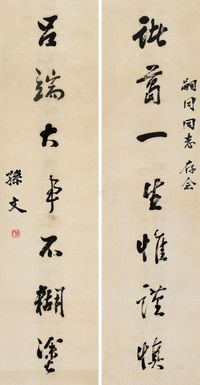 嗣同同志 存念
諸葛一生惟謹慎
呂端大事不糊塗
孫文